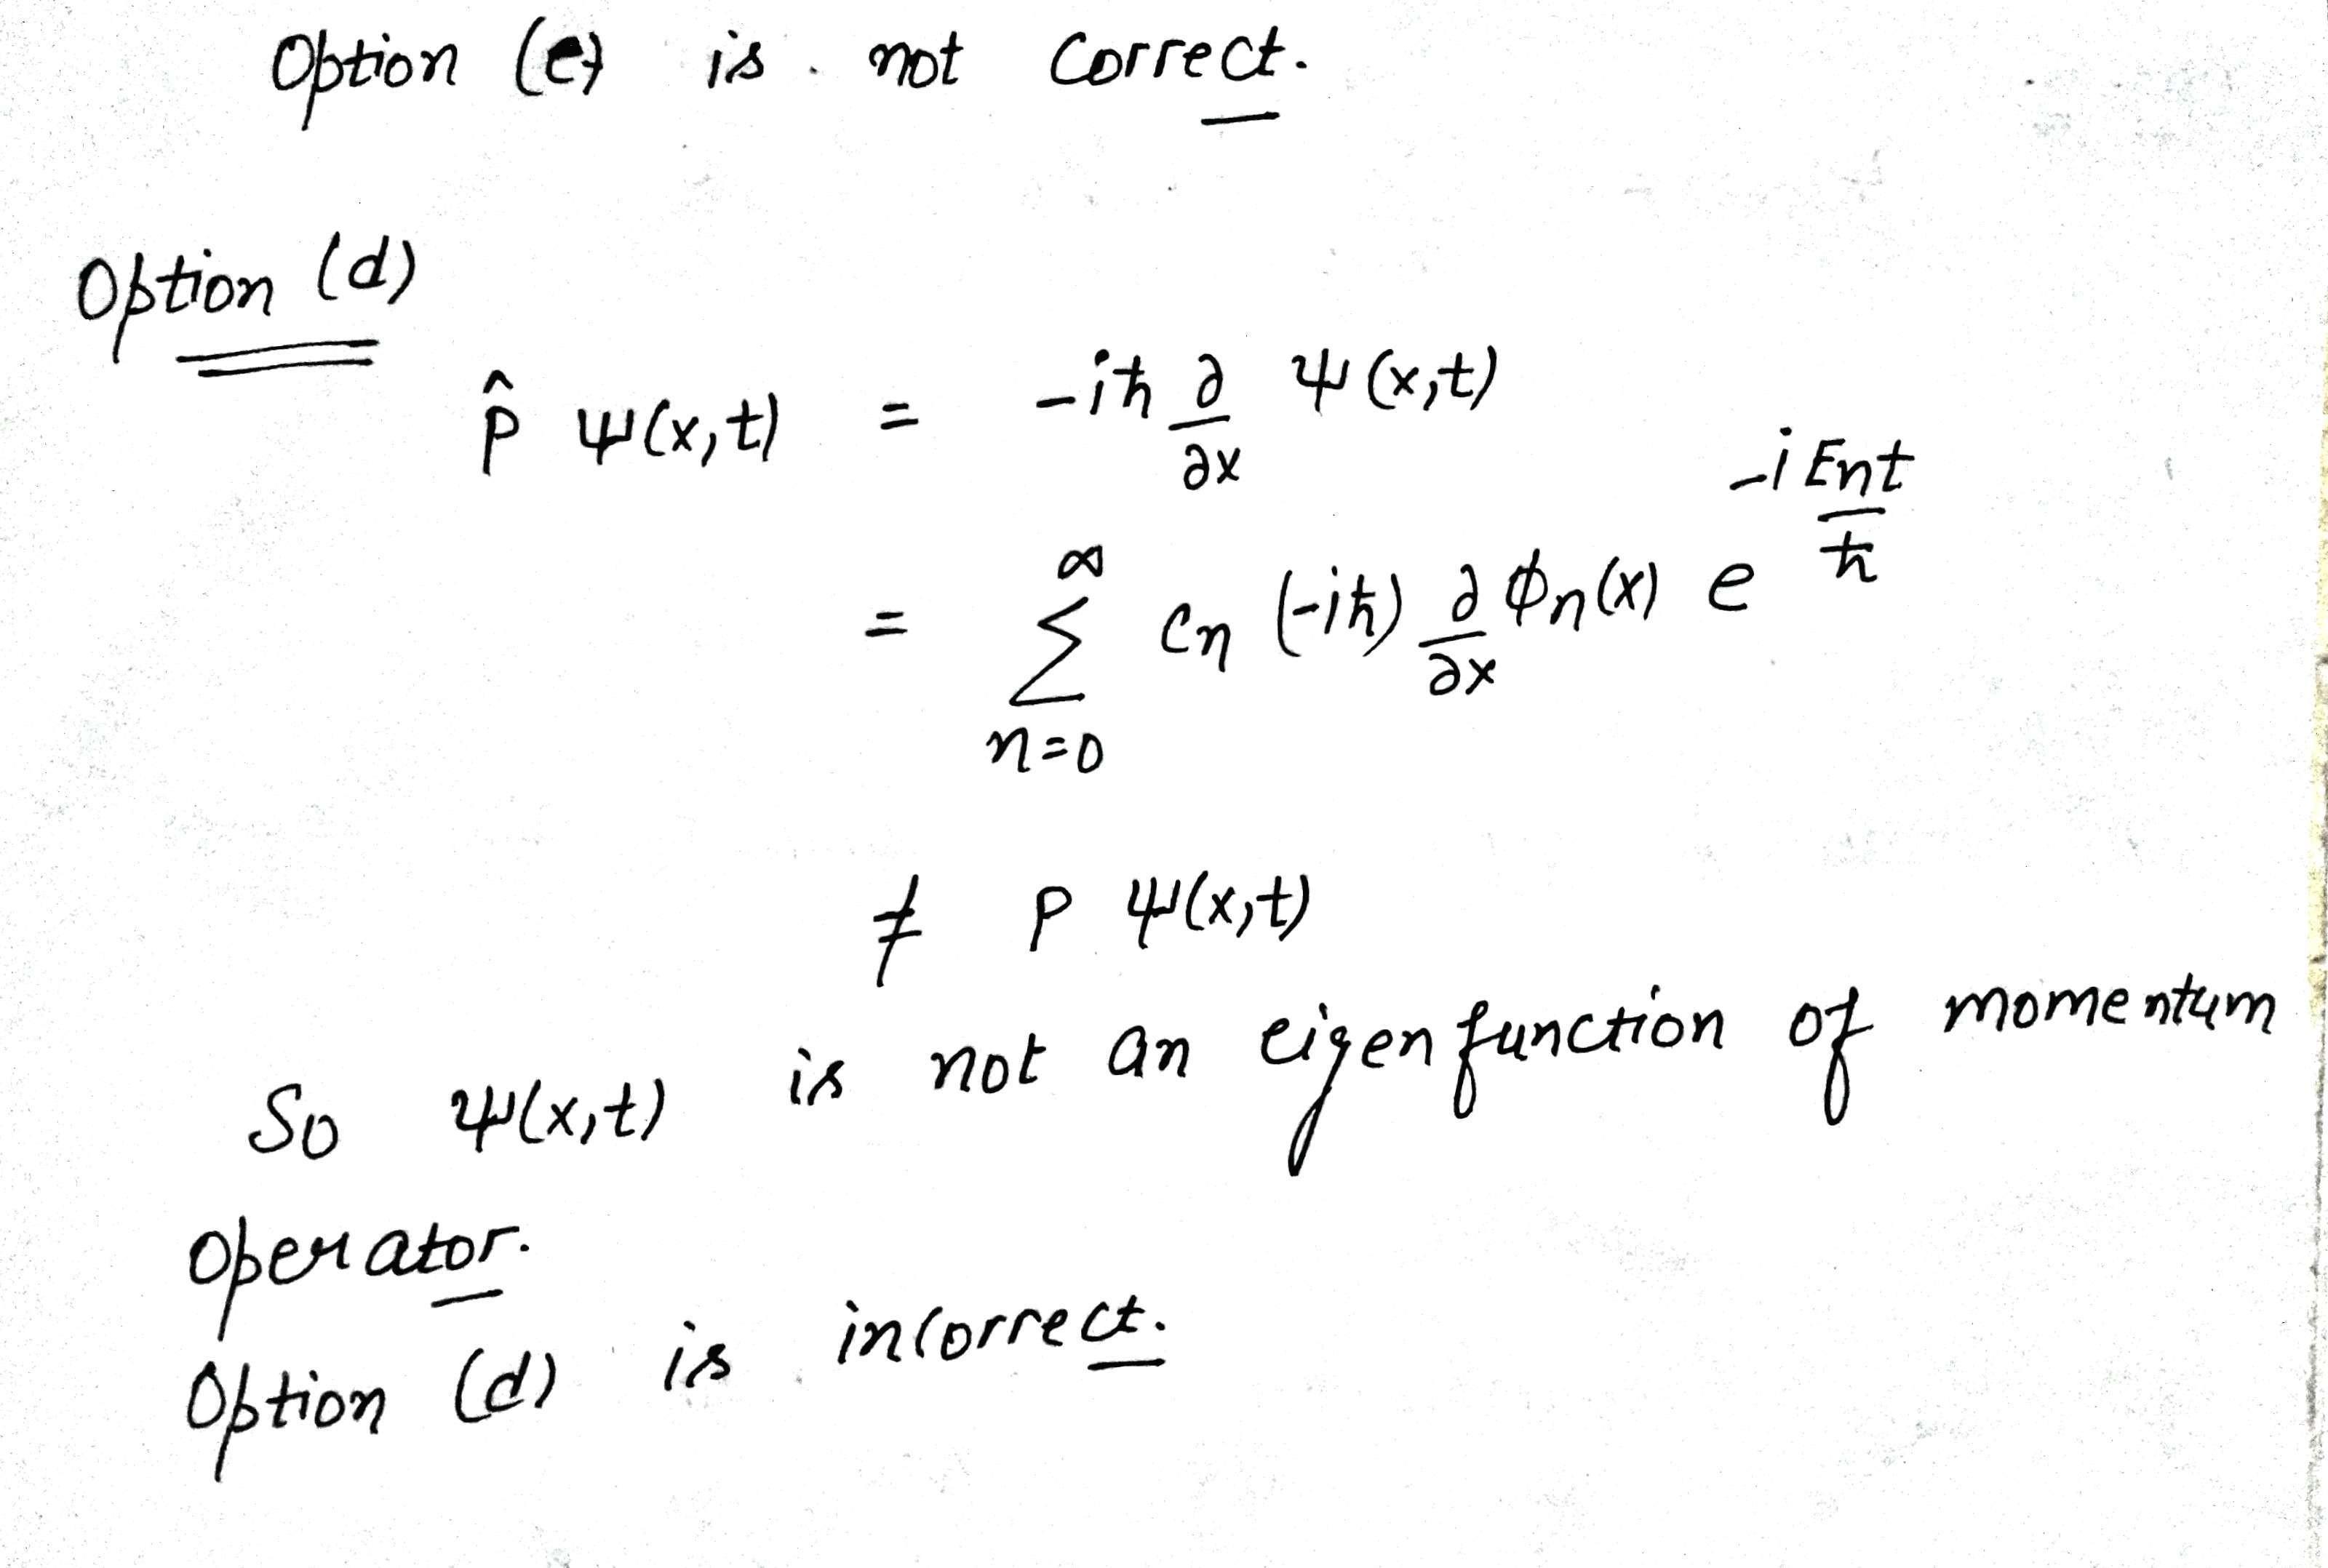 Option (e) is not correct.
Option (d)
p̂ ψ(x,t) = -iħ ∂/∂x ψ(x,t)
= ∑_{n=0}^{∞} cn (-iħ) ∂/∂x ϕn(x) e^{-i Ent/ħ}
≠ p ψ(x,t)
So ψ(x,t) is not an eigen function of momentum
operator.
Option (d) is incorrect.